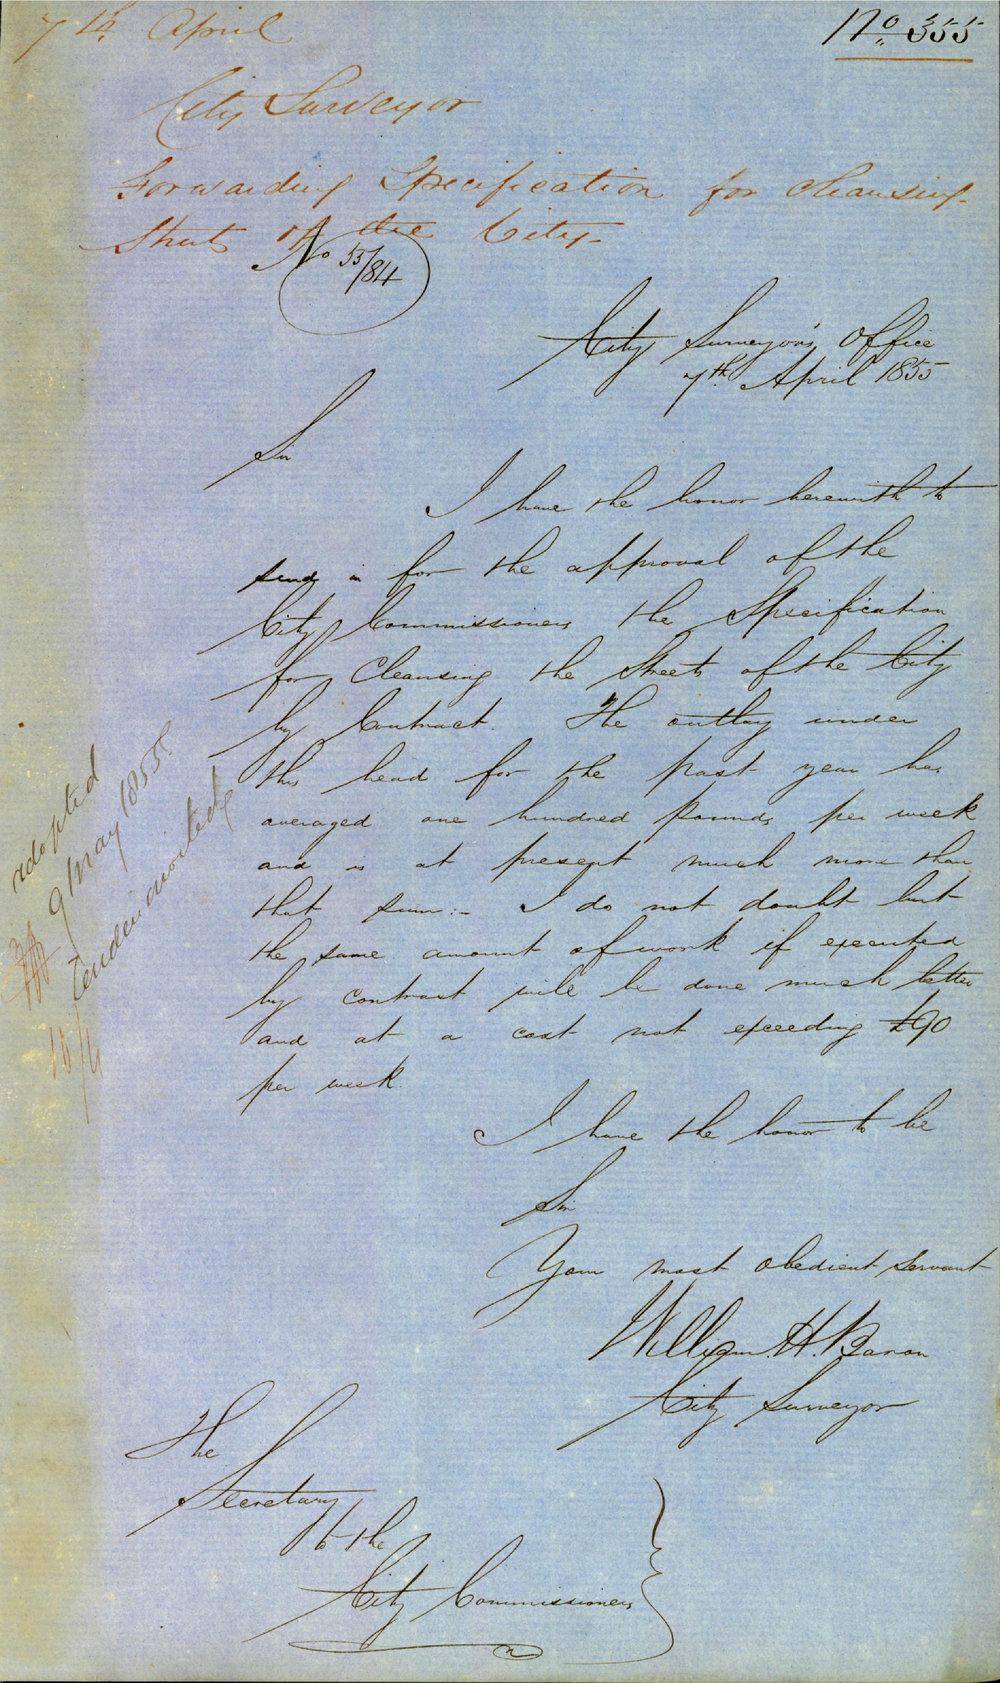 7th April
No 355
City Surveyor
Forwarding Specification for cleansing
Streets of the City
No 55/84
City Surveyor's Office
7th April 1855
Sir
I have the honor herewith to
send in for the approval of the
City Commissioners the Specification
for Cleansing the Streets of the City
by Contract. The outlay under
this head for the past year has
averaged one hundred Pounds per week
and is at present much more than
that sum:- I do not doubt but
the same amount of work if executed
by contract will be done much better
and at a cost not exceeding £90
per week
I have the honor to be
Sir
Your most obedient servant
William. H. Baron
City Surveyor
The
Secretary
to the
City Commissioners
adopted
9 May 1855
Tenders invited
10/4